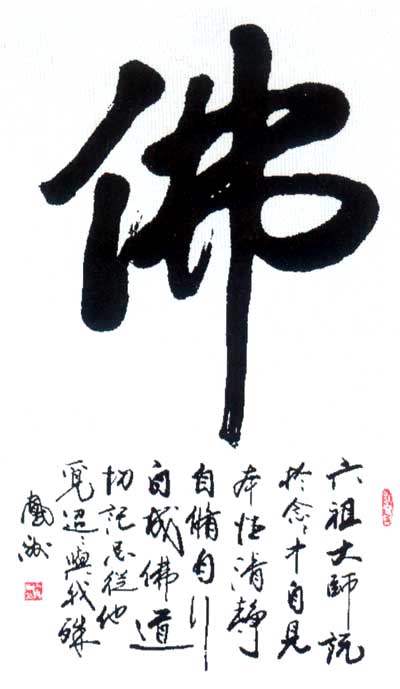 佛
六祖大師説
於念々中自見
本性清靜
自脩自行
自成佛道
切記忌從他
覓迢々與我殊